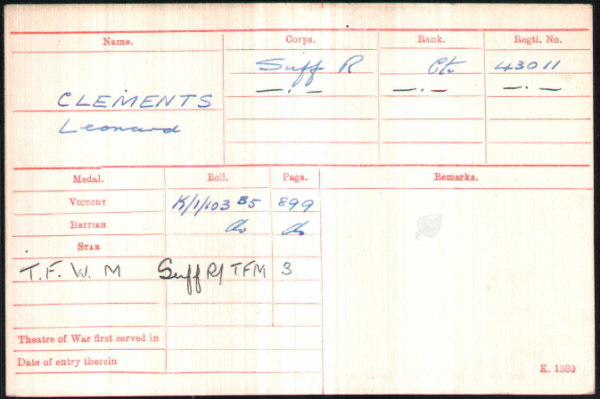 Name. Corps. Rank. Regtl. No.
Suff R Pte 43011
— . — — . — — . —
CLEMENTS
Leonard
Medal. Roll. Page. Remarks.
VICTORY K/1/103 B5 899
BRITISH do do
STAR
T.F.W.M Suff R/TFM 3
Theatre of War first served in
Date of entry therein
K. 1380